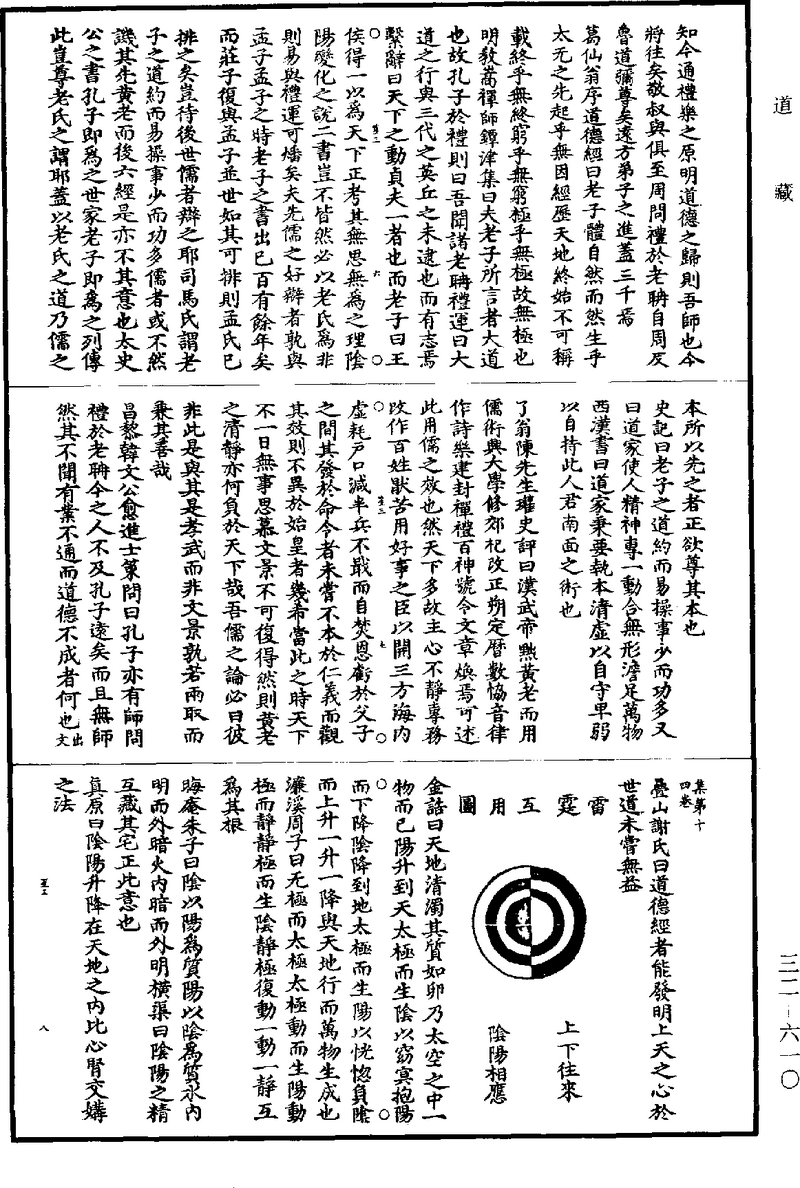 道藏
知今通禮樂之原明道德之歸則吾師也今
將往矣敬叔與俱至周問禮於老聃自周反
魯道彌尊矣遠方弟子之進蓋三千焉
葛仙翁序道德經曰老子體自然而然生乎
太无之先起乎無因經歷天地終始不可稱
載終乎無終窮乎無窮極乎無極故無極也
明教嵩禪師鐔津集曰夫老子所言者大道
也故孔子於禮則曰吾聞諸老聃禮運曰大
道之行與三代之英丘之未逮也而有志焉
繫辭曰天下之動貞夫一者也而老子曰王
侯得一以為天下正考其無思無為之理陰
陽變化之說二書豈不皆然必以老氏為非
則易與禮運可燔矣夫先儒之好辯者孰與
孟子孟子之時老子之書出已百有餘年矣
而莊子復與孟子並世如其可排則孟氏已
排之矣豈待後世儒者辯之耶司馬氏謂老
子之道約而易操事少而功多儒者或不然
譏其先黃老而後六經是亦不其意也太史
公之書孔子即為之世家老子即為之列傳
此豈尊老氏之謂耶蓋以老氏之道乃儒之
本所以先之者正欲尊其本也
史記曰老子之道約而易操事少而功多又
曰道家使人精神專一動合無形澹足萬物
西漢書曰道家秉要執本清虛以自守卑弱
以自持此人君南面之術也
了翁陳先生瓘史評曰漢武帝黜黃老而用
儒術興大學修郊祀改正朔定曆數恊音律
作詩樂建封禪禮百神號令文章煥焉可述
此用儒之效也然天下多故主心不靜專務
改作百姓猒苦用好事之臣以開三方海內
虛耗戶口減半兵不戢而自焚恩虧於父子
之間其發於命令者未嘗不本於仁義而觀
其效則不異於始皇者幾希當此之時天下
不一日無事思慕文景不可復得然則黃老
之清靜亦何負於天下哉吾儒之論必曰彼
非此是與其是孝武而非文景孰若兩取而
兼其善哉
昌黎韓文公愈進士策問曰孔子亦有師問
禮於老聃今之人不及孔子遠矣而且無師
然其不聞有業不通而道德不成者何也出文
集第十四卷
疊山謝氏曰道德經者能發明上天之心於
世道未嘗無益
雷霆互用圖
上下往來
陰陽相應
金誥曰天地清濁其質如卵乃太空之中一
物而已陽升到天太極而生陰以窈冥抱陽
而下降陰降到地太極而生陽以恍惚負陰
而上升一升一降與天地行而萬物生成也
濂溪周子曰无極而太極太極動而生陽動
極而靜靜極而生陰靜極復動一動一靜互
為其根
晦庵朱子曰陰以陽為質陽以陰為質水內
明而外暗火內暗而外明橫渠曰陰陽之精
互藏其宅正此意也
真原曰陰陽升降在天地之內比心腎交媾
之法
八
三二-六一〇